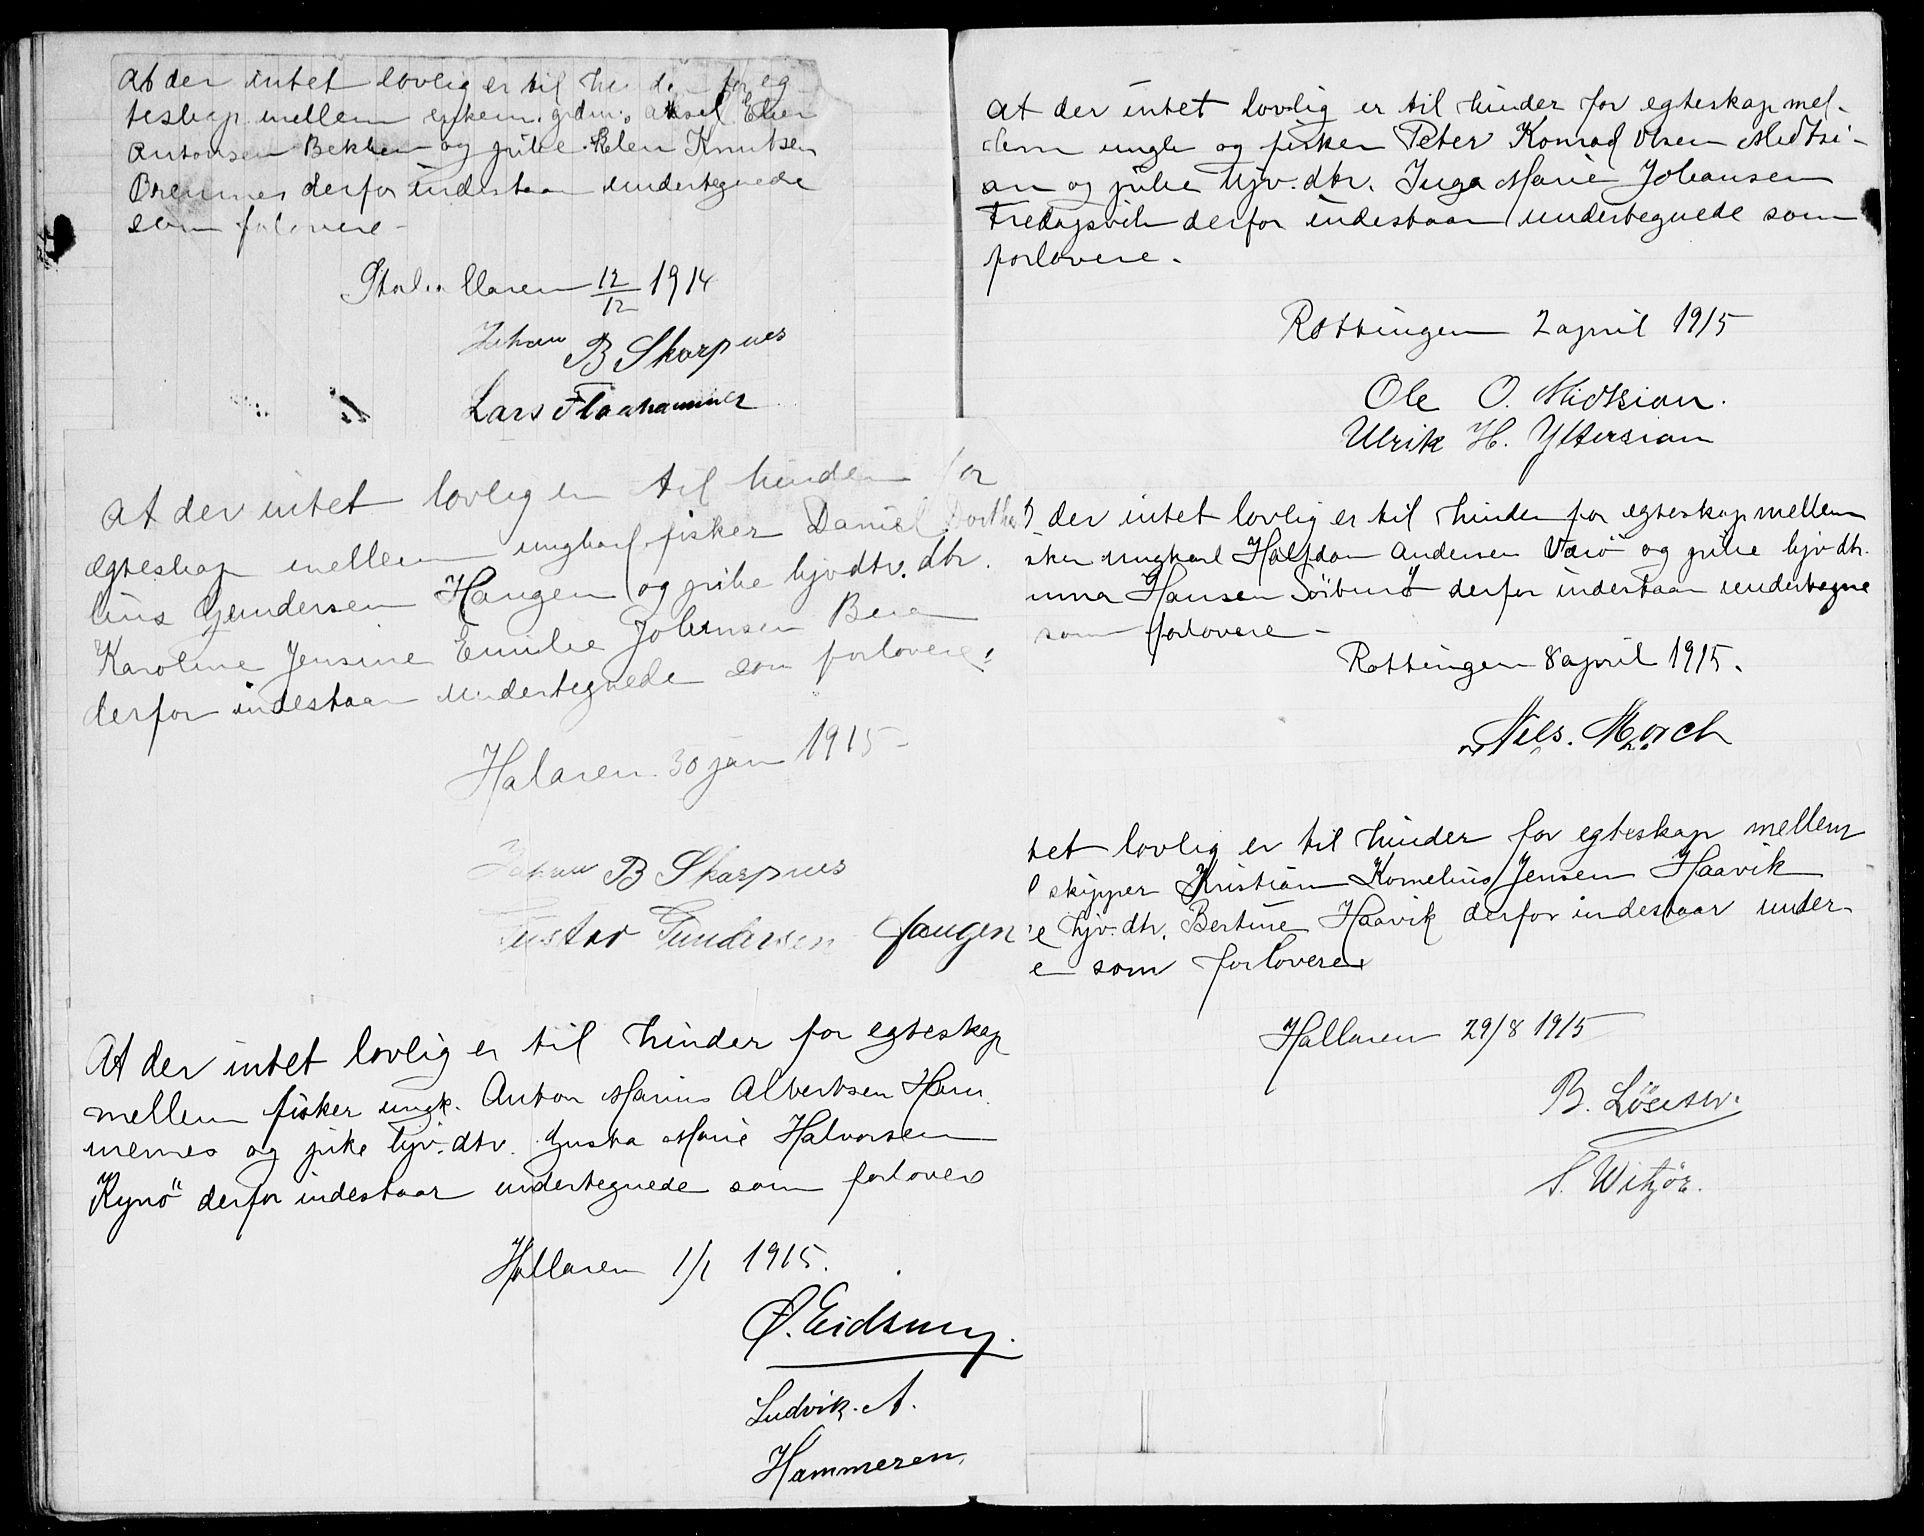 At der intet lovlig er til hinder for eg
teskap mellem enkem. grdm. Aksel Elier
Antonsen Bekken og pike Elen Knutsen
Brennes derfor indestaar undertegnede
som forlovere -
Hallaren 12/12 1914
Johan B Skarpnes
Lars Flaahammer
At der intet lovlig er til hinder for
egteskap mellem ungkarl fisker Daniel Dorthe
lius Gundersen Haugen og pike hjv.dtr. dtr.
Karoline Jensine Emilie Johansen
derfor indestaar undertegnede som forlovere.
Halaren 30 jan 1915
Johan B Skarpnes
Gustav Gundersen Haugen
At der intet lovlig er til hinder for egteskap
mellem fisker ungk. Anton Marius Albertsen Ham
mernes og pike hjv. dtr. Gusta Marie Halvorsen
Kynö derfor indestaar undertegnede som forlovere
Hallaren 1/1 1915.
O. Eidsung.
Ludvik. A.
Hammeren.
At der intet lovlig er til hinder for egteskap mel-
lem ungk og fisker Peter Konrad Olsen Midtsi-
an og pike hjv. dtr. Inga Marie Johansen
Fredagsvik derfor indestaar undertegnede som
forlovere.
Rottingen 2 april 1915
Ole O. Midtsian.
Ulrik H. Yttersian
t der intet lovlig er til hinder for egteskap mellem
sker ungkarl Halfdan Andersen Værö og pike hjv dtr.
nna Hansen Sörburö derfor indestaar undertegne
som forlovere -
Rottingen 8 april 1915.
Nils. Morch
tet lovlig er til hinder for egteskap mellem
l skipper Kristian Kornelius Jensen Haavik
e hjv. dtr. Bertine Haavik derfor indestaar under-
e som forlovere
Hallaren 29/8 1915
B. Löseth.
S. Witzöe.